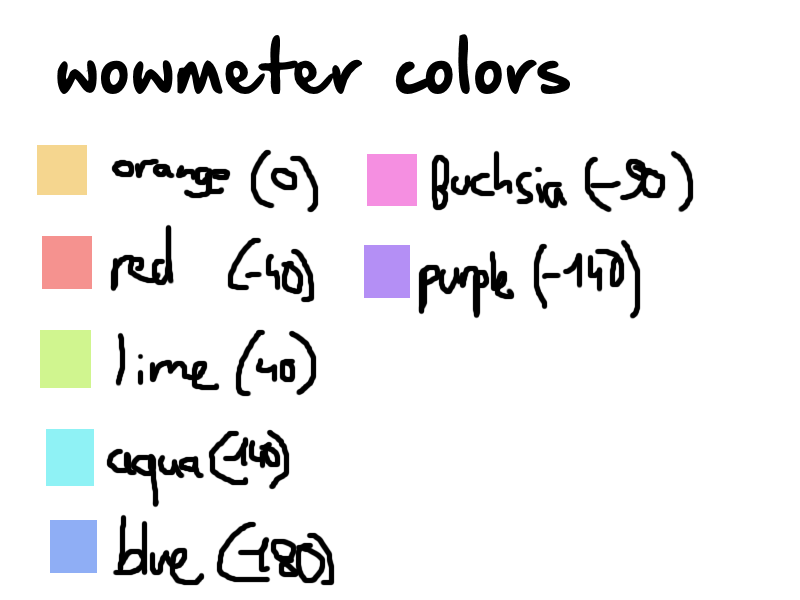 wowmeter colors
orange (0)
red (-40)
lime (40)
aqua (140)
blue (-180)
fuchsia (-90)
purple (-140)